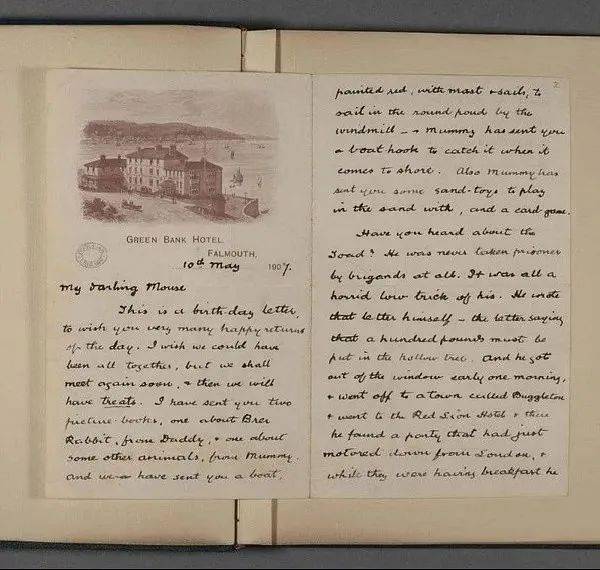 GREEN BANK HOTEL,
FALMOUTH,
10th May 1907.
My Darling Mouse
This is a birth-day letter,
to wish you very many happy returns
of the day. I wish we could have
been all together, but we shall
meet again soon, & then we will
have treats. I have sent you two
picture-books, one about Brer
Rabbit, from Daddy, & one about
some other animals, from Mummy.
And we have sent you a boat,
2
painted red, with mast & sails, to
sail in the round pond by the
windmill — & Mummy has sent you
a boat hook to catch it when it
comes to shore. Also Mummy has
sent you some sand-toys to play
in the sand with, and a card game.
Have you heard about the
Toad? He was never taken prisoner
by brigands at all. It was all a
horrid low trick of his. He wrote
that letter himself — the letter saying
that a hundred pounds must be
put in the hollow tree. And he got
out of the window early one morning,
& went off to a town called Buggleton
& went to the Red Lion Hotel & there
he found a party that had just
motored down from London, &
while they were having breakfast he